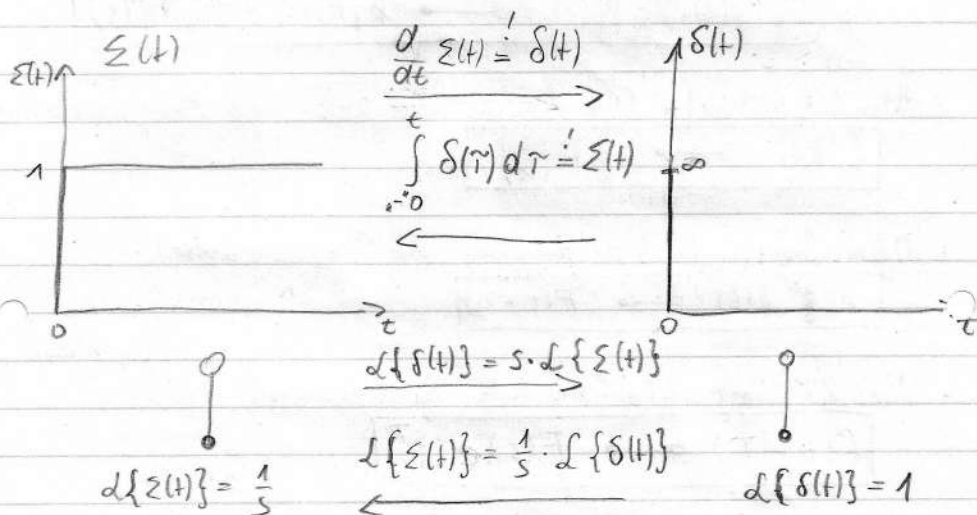 Σ(t)
Σ(t)
1
0
t
d/dt Σ(t) =! δ(t)
∫_{"-"0}^{t} δ(τ) dτ =! Σ(t)
δ(t)
∞
0
t
ℒ{δ(t)} = s · ℒ{Σ(t)}
ℒ{Σ(t)} = 1/s · ℒ{δ(t)}
ℒ{Σ(t)} = 1/s
ℒ{δ(t)} = 1